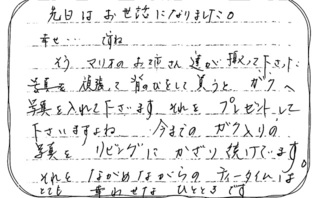 先日はお世話になりました。
幸せ… ですね
そう マリオのお姉さん達が撮って下さった
写真を 後で 皆のひとして 買うと ガクへ
写真を入れて下さいます それを プレゼントして
下さいますよね 今までの ガク入りの
写真を リビングに かざり 続けています。
それを ながめながらの ティータイムは
とても 幸わせな ひとときです